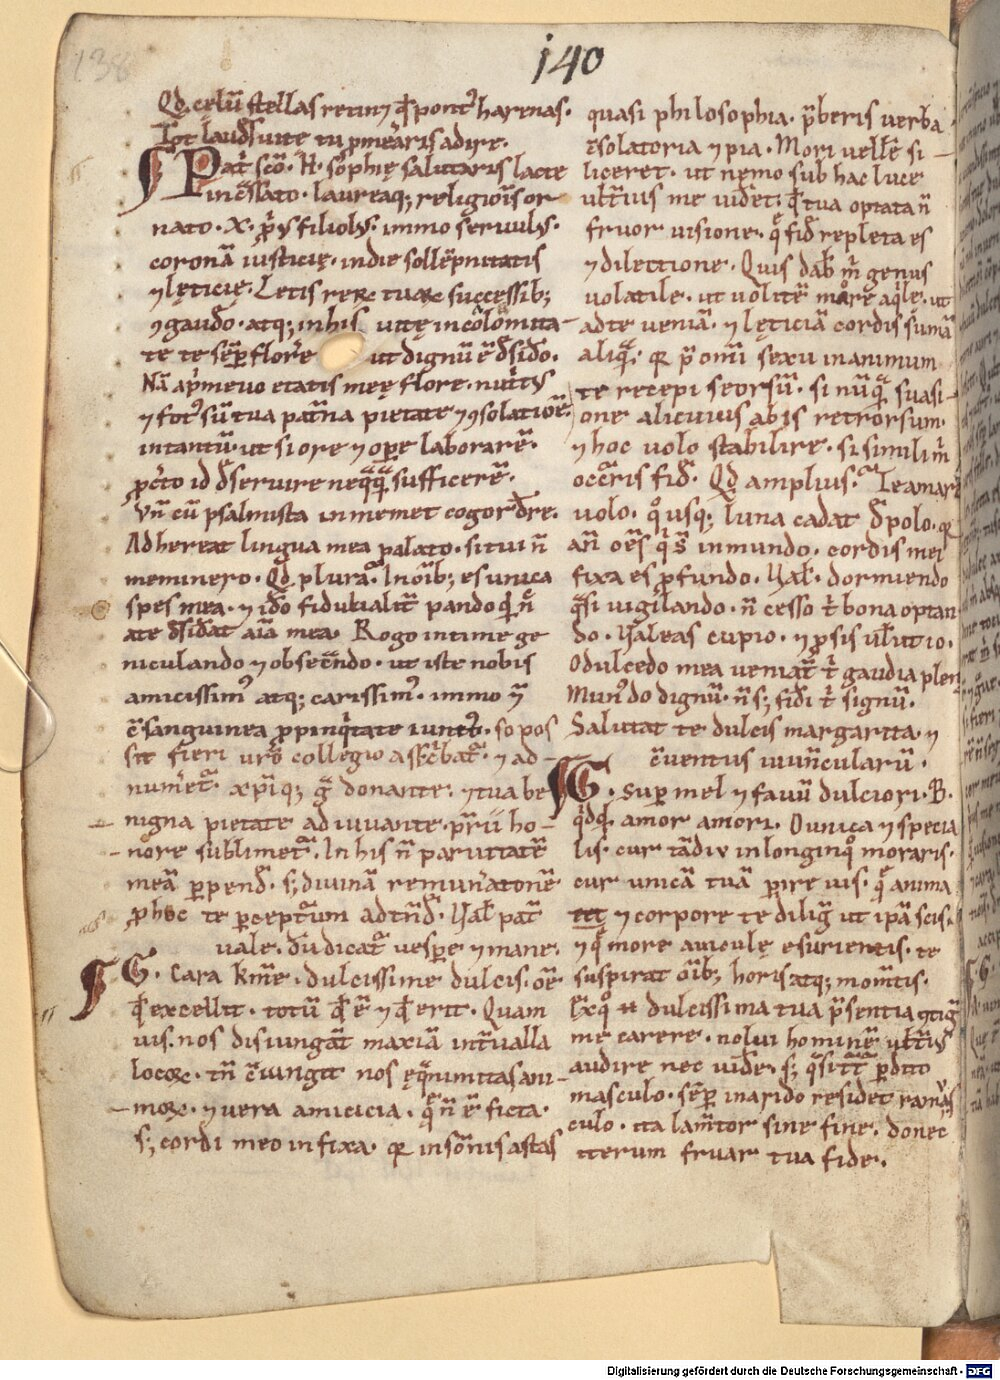 140
138
Qd celū stellas retinȝ qđ pont᷒ harenas.
Tot laudū uite tu pmēaris adire.
Pat̄ scō. H. sophię salutaris lacte
incēssato. laureaq; religiōis or
nato. X. p̄ȳs filiol᷒. immo seruul᷒.
coronā iusticię. in die sollēpnitatis
⁊ lęticię. Letis reꝝ tuaꝝ successib;
⁊ gaudō. atq; in his uitę incolomita-
te te semp̄ florere ut dignū ē dsidō.
Nā ap̄meuo etatis meę flore. nutt᷒
⁊ fot᷒ sū tua pat̄na pietate ⁊ ꝯsolatiōe.
intantū. ut si ore ⁊ ope laborarē.
ꝓcto id dseruire neqqq sufficerē.
Vn̄ cū psalmista in memet cogor dre.
Adhereat lingua mea palato. si tui n̄
meminero. Qd plura? In oib; es unica
spes mea. ⁊ idō fidutialit̄ pando qnē
a te dsidat aīa mea. Rogo intime ge
niculando ⁊ obsecndo. ut iste nobis
amicissim᷒ atq; carissim᷒. immo
ēsanguinea ꝓpinqitate iunct᷒. so pos
sit fieri urō collegio ascribat̄. ⁊ ad-
numet̄. xp̄iq; gr̄a donante. ⁊ tua be
nigna pietate adiuuante. p̄rii ho-
nore sublimet̄. In his n̄ paruitatē
meā ꝑpend. s; diuinā remunatonē
ꝓ hoc te ꝑceptum adtnd. Val pat̄
uale. dū dicat̄ uespe. ⁊ mane.
G. Cara kme. dulcissime dulcis. oē
qđ excellit. totū qđ ē ⁊ qđ erit. Quam
uis. nos disiungāt maxīa int̄ualla
locoꝝ. tn̄ ēiungit nos ęqnimitas ani-
moꝝ. ⁊ uera amicicia. q n̄ ē ficta.
s; cordi meo infixa. qꝛ in somnis astas
quasi philosophia. p̄beris uerba
ꝯsolatoria ⁊ pia. Mori uellē si-
liceret. ut nemo sub hac luce
ult̄ius me uidet; qđ tua optata n̄
fruor uisione. q fid repleta es
⁊ dilectione. Quis dab m̄ genus
uolatile. ut uolitē more aqle. ut
ad te ueniā. ⁊ lęticiā cordis sumā
aliq. qꝛ p̄ omi sexu in animum
te recepi seorsū. si nuq suasi-
one alicuius abis retrorsum.
⁊ hoc uolo stabilire. si similim
occris fid. Qd amplius? Te amare
uolo. qusq; luna cadat đ polo. qꝛ
an̄ oēs q s̄ in mundo. cordis mei
fixa es ꝓfundo. Val. dormiendo
qsi uigilando. n̄ cesso t̄ bona optan
do. Valeas cupio. ⁊ ꝓsis ult̄io.
O dulcedo mea ueniat t̄ gaudia plena
Mundo dignū. n̄ s; fidi t̄ signū.
Salutat te dulcis margarita. ⁊
ēuentus iuuēncularū.
G. Sup mel ⁊ fauū dulciori. B.
qdqd amor amori. O unica ⁊ specia
lis. cur tādiu in longinqo moraris.
cur unicā tuā ꝑire uis. q anima
⁊ corpore te dilig ut ip̄a scis.
⁊ q more auiculę esurientis. te
suspirat oib; horis atq; momtis.
Ex quo dulcissima tua p̄sentia ꝯtig
me carere. nolui hominē ult̄i᷒
audire nec uide. s; qsi ꝑdito
masculo. semp̄ in arido residet ramus
culo. ita lamtor sine fine. donec
iterum fruar tua fide.
Digitalisierung gefördert durch die Deutsche Forschungsgemeinschaft - DFG